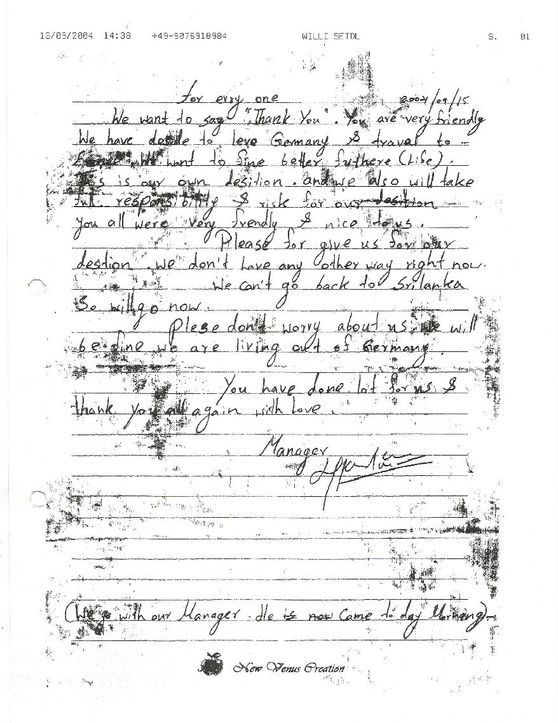 13/09/2004 14:38 +49-9076918984 WILLI SEIDL S. 01
for evry one 2004/09/15
We want to say "Thank You". You are very friendly
We have deside to leve Germany & travel to -
We want to fine better futhere (Life).
This is our own desition. and we also will take
full responsibility & risk for our desition
you all were very frendly & nice to us.
Please for give us for our
desition we don't have any other way right now.
We can't go back to Srilanka
So will go now.
Plese don't worry about us, we will
be fine we are living out of Germany.
You have done lot for us &
thank you all again with love.
Manager
(We go with our Manager. He is now Came to day Morning-
New Venus Creation